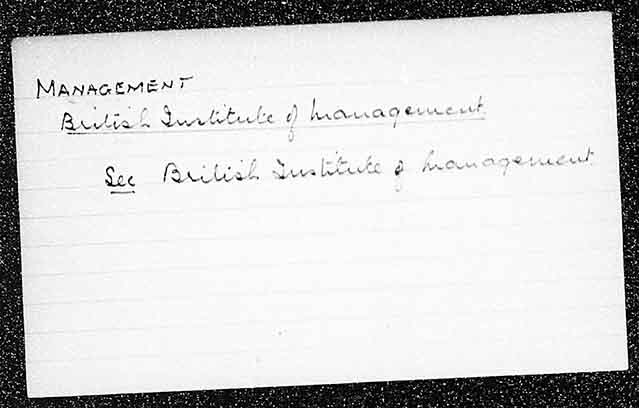 MANAGEMENT
British Institute of Management
See British Institute of Management